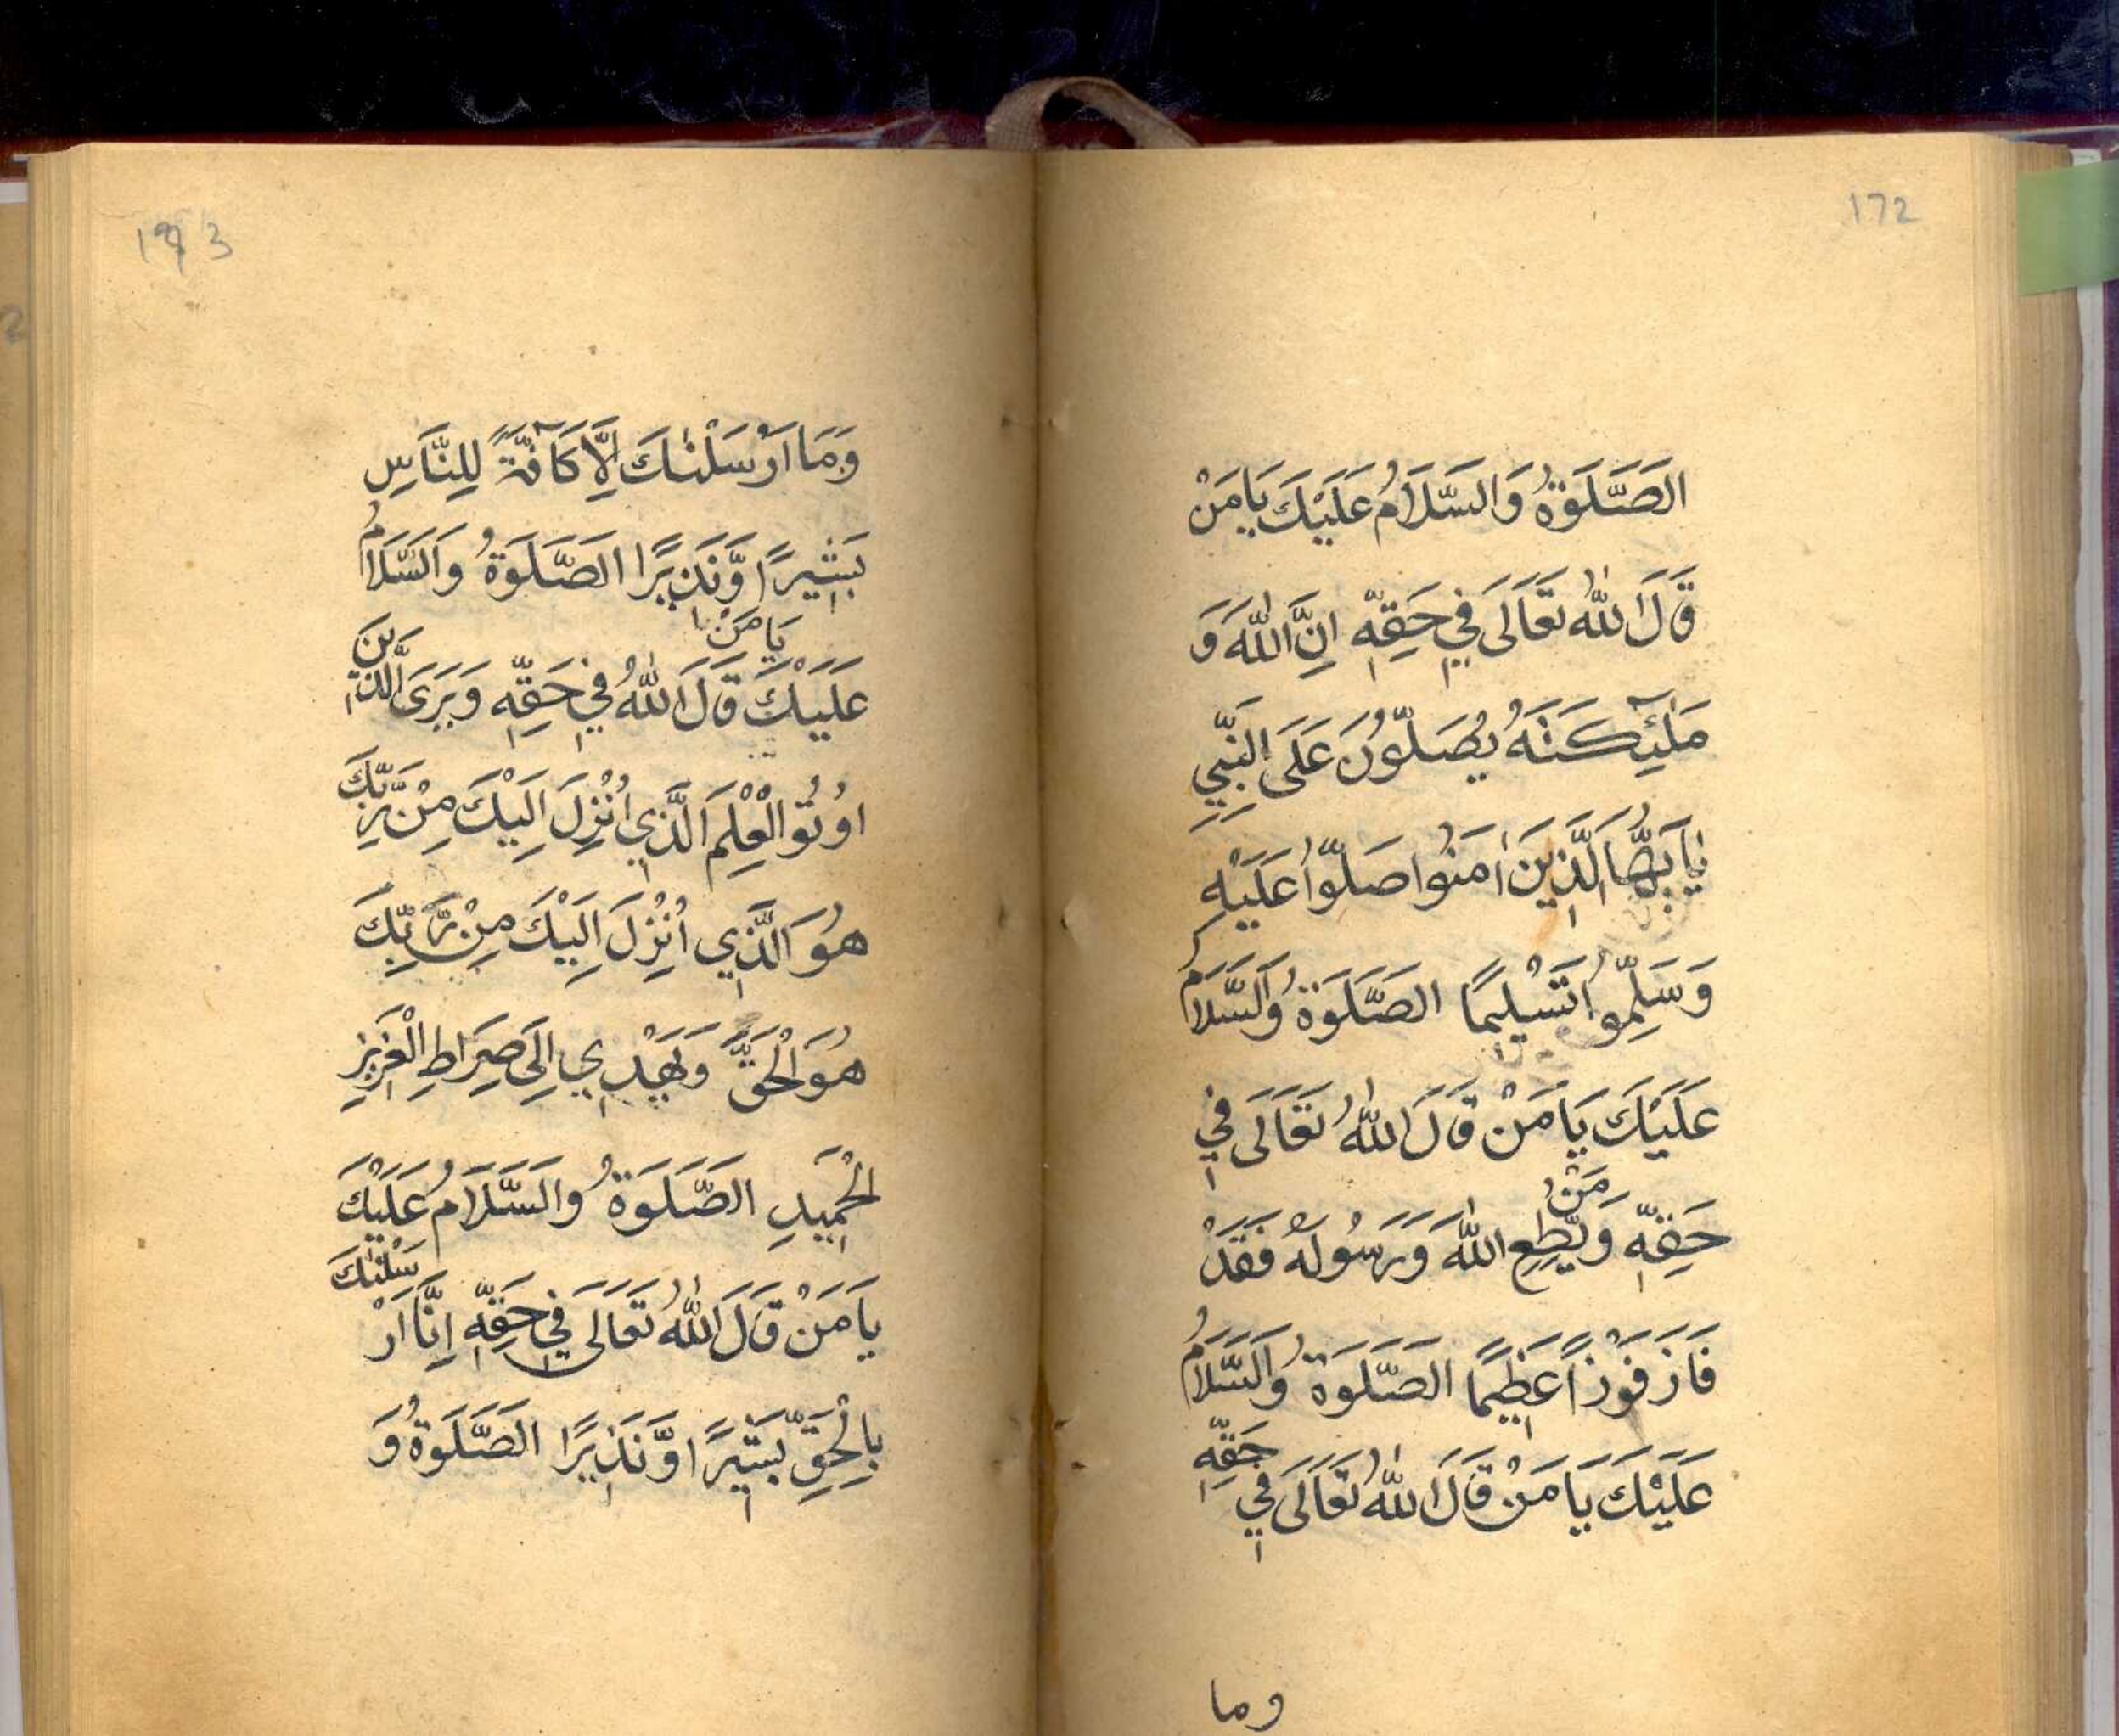 172
الصَّلَوةُ وَالسَّلَامُ عَلَيْكَ يَا مَنْ
قَالَ اللّٰهُ تَعَالَى فِي حَقِّهٖ اِنَّ اللّٰهَ وَ
مَلٰٓئِكَتَهُ يُصَلُّونَ عَلَى النَّبِيِّ
يٰٓاَيُّهَا الَّذِينَ اٰمَنُوا صَلُّوا عَلَيْهِ
وَسَلِّمُوا تَسْلِيمًا الصَّلَوةُ وَالسَّلَامُ
عَلَيْكَ يَا مَنْ قَالَ اللّٰهُ تَعَالَى فِي
حَقِّهٖ وَمَنْ يُّطِعِ اللّٰهَ وَرَسُولَهُ فَقَدْ
فَازَ فَوْزًا عَظِيمًا الصَّلَوةُ وَالسَّلَامُ
عَلَيْكَ يَا مَنْ قَالَ اللّٰهُ تَعَالَى فِي حَقِّهٖ
وما
وَمَا اَرْسَلْنٰكَ اِلَّا كَآفَّةً لِلنَّاسِ
بَشِيرًا وَّنَذِيرًا الصَّلَوةُ وَالسَّلَامُ
عَلَيْكَ يَا مَنْ قَالَ اللّٰهُ فِي حَقِّهٖ وَيَرَى الَّذِينَ
اُوتُوا الْعِلْمَ الَّذِي اُنْزِلَ اِلَيْكَ مِنْ رَّبِّكَ
هُوَ الَّذِي اُنْزِلَ اِلَيْكَ مِنْ رَّبِّكَ
هُوَ الْحَقَّ وَيَهْدِي اِلَى صِرَاطِ الْعَزِيزِ
الْحَمِيدِ الصَّلَوةُ وَالسَّلَامُ عَلَيْكَ
يَا مَنْ قَالَ اللّٰهُ تَعَالَى فِي حَقِّهٖ اِنَّا اَرْسَلْنٰكَ
بِالْحَقِّ بَشِيرًا وَّنَذِيرًا الصَّلَوةُ وَ